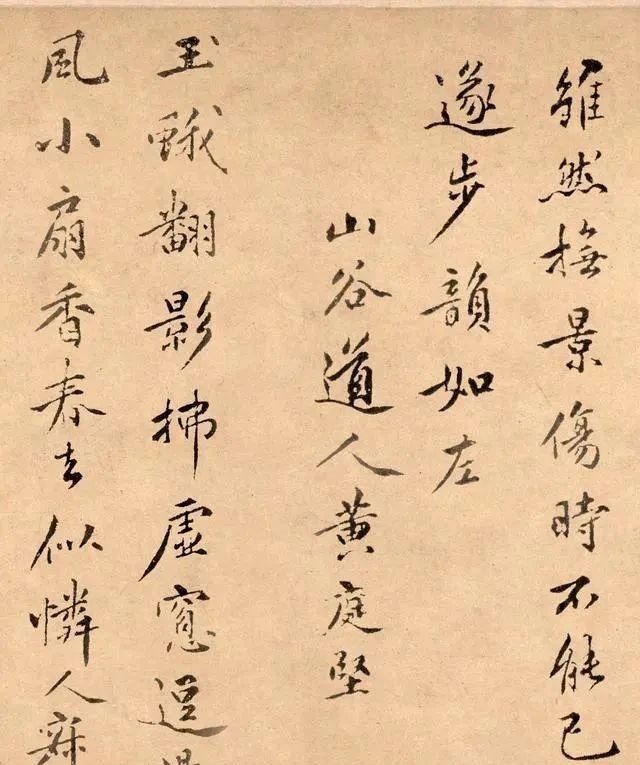 雖然撫景傷時不能已
遂步韻如左
山谷道人黄庭堅
玉蛾翻影拂虛窓逗
風小扇香春去似憐人寂